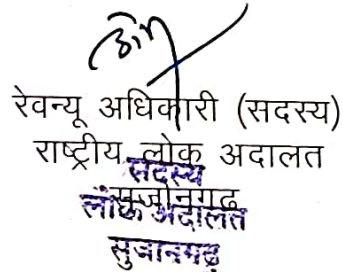 रेवन्यू अधिकारी (सदस्य)
राष्ट्रीय लोक अदालत
सदस्य
सुजानगढ
लोक अदालत
सुजानगढ़